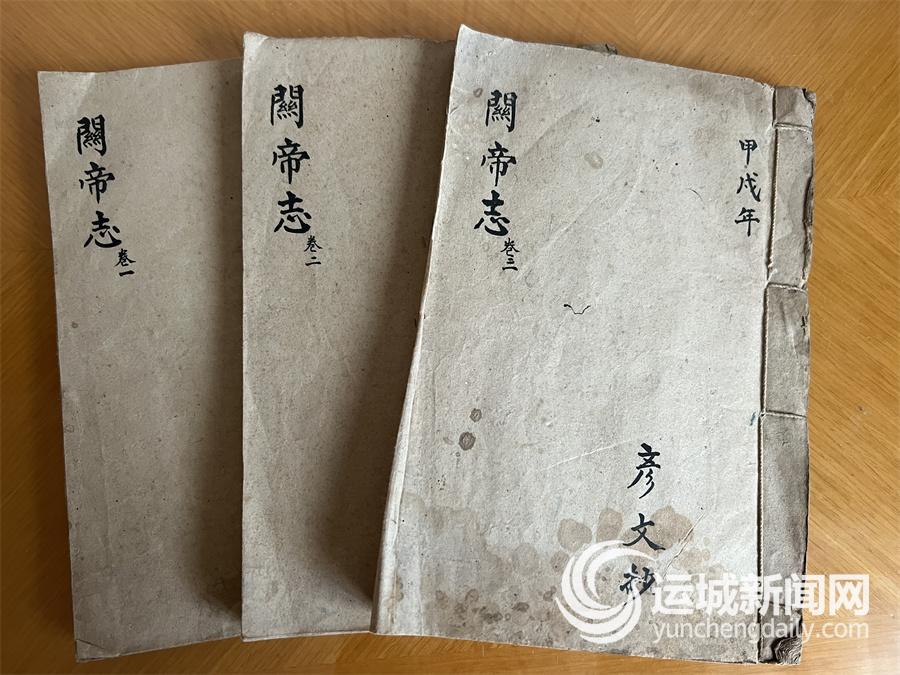 關帝志 卷一
關帝志 卷二
關帝志 卷三
甲戌年
彦文抄
运城新闻网
yunchengdaily.com